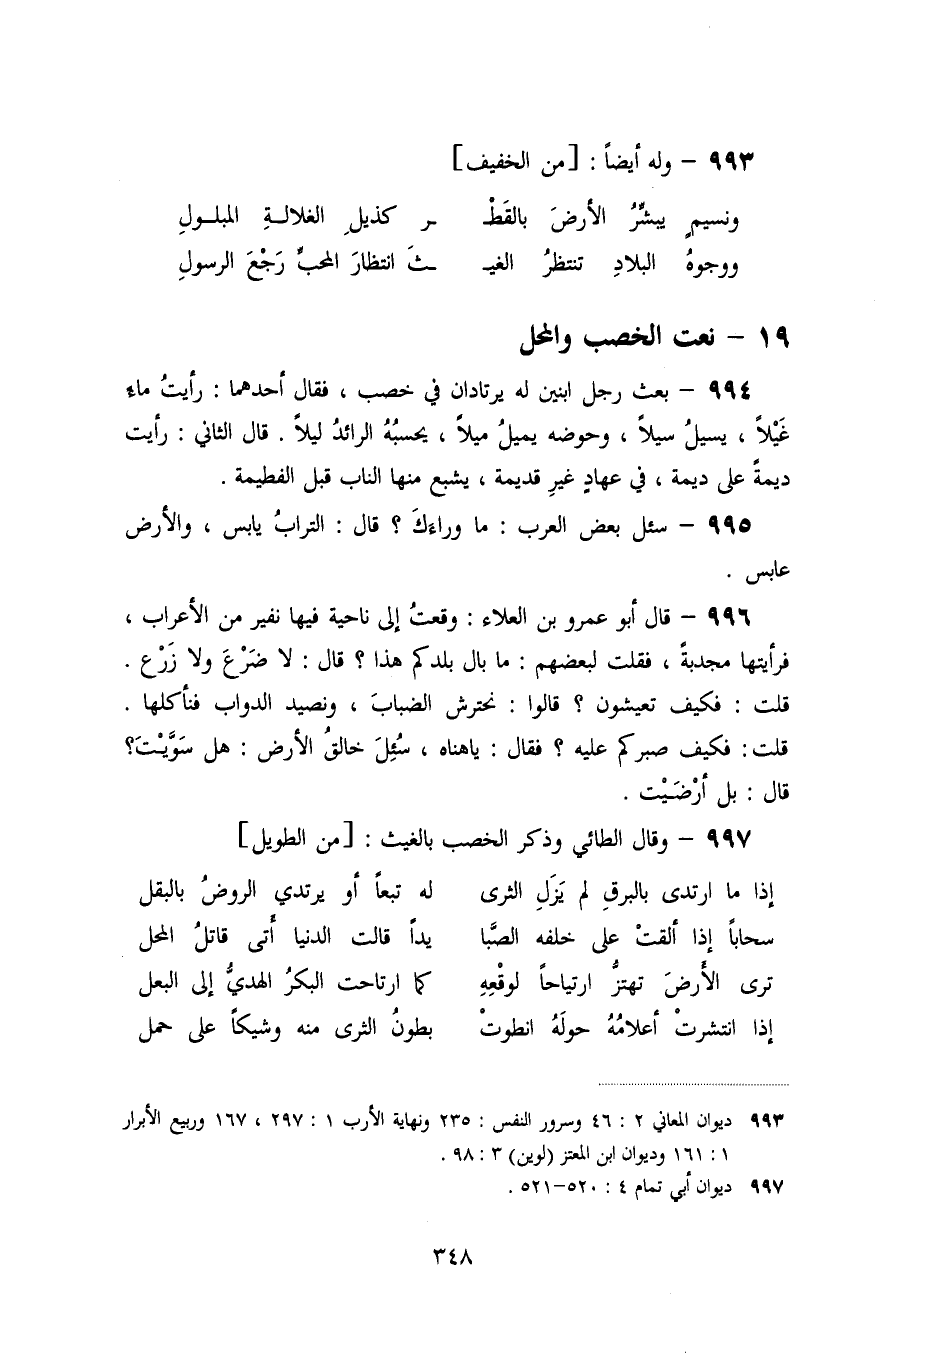 ٩٩٣ – وله أيضاً : [من الخفيف]
ونسيمٍ يبشّرُ الأرضَ بالقَطْـ ـر كذيلِ الغلالـةِ المبلـولِ
ووجوهُ البلادِ تنتظرُ الغيـ ـثَ انتظارَ المحبِّ رَجْعَ الرسولِ
١٩ – نعت الخصب والمحل
٩٩٤ – بعث رجل ابنين له يرتادان في خصب ، فقال أحدهما : رأيتُ ماء
غَيْلاً ، يسيلُ سيلاً ، وحوضه يميلُ ميلاً ، يحسبُهُ الرائدُ ليلاً . قال الثاني : رأيت
ديمةً على ديمة ، في عهادٍ غيرِ قديمة ، يشبع منها الناب قبل الفطيمة .
٩٩٥ – سئل بعض العرب : ما وراءكَ ؟ قال : الترابُ يابس ، والأرض
عابس .
٩٩٦ – قال أبو عمرو بن العلاء : وقعتُ إلى ناحية فيها نفير من الأعراب ،
فرأيتها مجدبةً ، فقلت لبعضهم : ما بال بلدكم هذا ؟ قال : لا ضَرْعَ ولا زَرْع .
قلت : فكيف تعيشون ؟ قالوا : نحترش الضبابَ ، ونصيد الدواب فنأكلها .
قلت : فكيف صبركم عليه ؟ فقال : ياهناه ، سُئِلَ خالقُ الأرض : هل سَوَّيْتَ؟
قال : بل أرْضَيْت .
٩٩٧ – وقال الطائي وذكر الخصب بالغيث : [من الطويل]
إذا ما ارتدى بالبرقِ لم يَزَلِ الثرى له تبعاً أو يرتدي الروضُ بالبقل
سحاباً إذا ألقتْ على خلفه الصَّبا يداً قالت الدنيا أتى قاتلُ المحل
ترى الأرضَ تهتزُّ ارتياحاً لوقْعِهِ كما ارتاحت البكرُ الهديُّ إلى البعل
إذا انتشرتْ أعلامُهُ حولَهُ انطوتْ بطونُ الثرى منه وشيكاً على حمل
٩٩٣ ديوان المعاني ٢ : ٤٦ وسرور النفس : ٢٣٥ ونهاية الأرب ١ : ٢٩٧ ، ١٦٧ وربيع الأبرار
١ : ١٦١ وديوان ابن المعتز (لوين) ٣ : ٩٨ .
٩٩٧ ديوان أبي تمام ٤ : ٥٢٠–٥٢١ .
٣٤٨